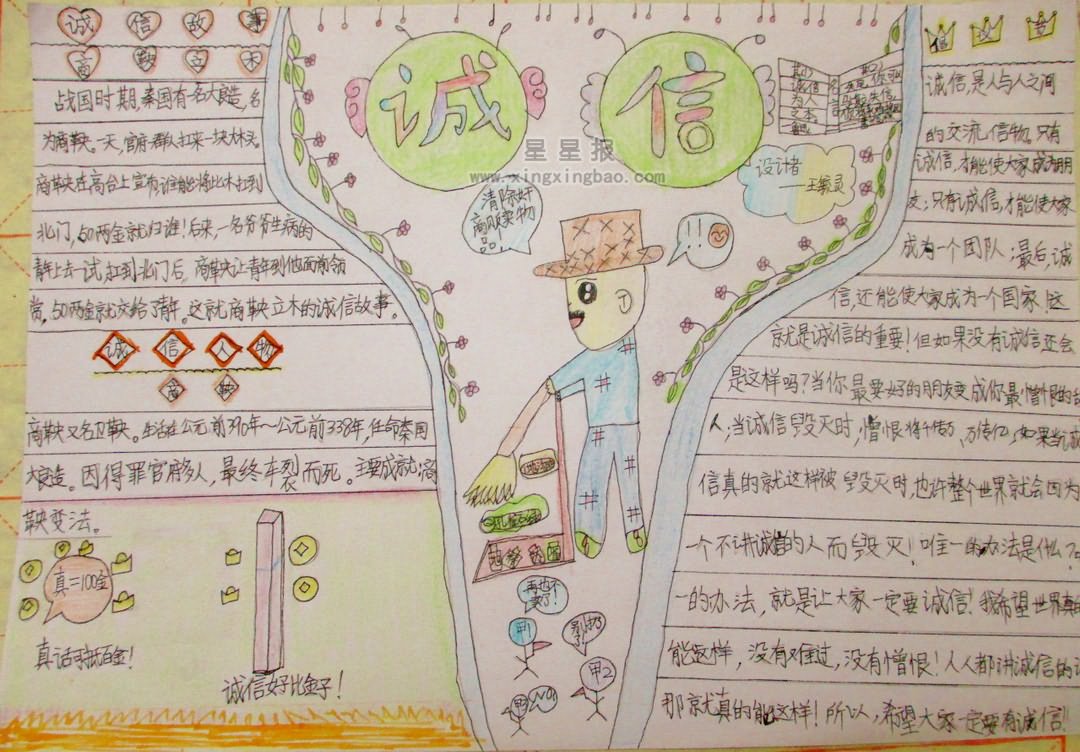 诚信故事
商鞅立木
战国时期,秦国有一名大良造,名
为商鞅。一天,官府群队扛来一块木头。
商鞅在高台上宣布谁能将此木扛到
北门,50两金就归谁!后来,一名爷爷生病的
青年上去一试,扛到北门后,商鞅让青年到他面前领
赏。50两金就交给了青年。这就商鞅立木的诚信故事。
诚信人物
商鞅
商鞅又名卫鞅。生活在公元前390年~公元前338年,任命秦国
大良造。因得罪官府多人,最终车裂而死。主要成就:商
鞅变法。
真=100金
真话可抵百金!
诚信好比金子!
诚信
星星报
www.xingxingbao.com
设计者
——王毓灵
清除奸
商贩卖物
品!
!!
再也不
卖了!
甲1
别扔
了!
甲2
NO!
诚信,是人与人之间
的交流信物。只有
诚信,才能使大家成为朋
友;只有诚信,才能使大家
成为一个团队;最后,诚
信,还能使大家成为一个国家!这
就是诚信的重要!但如果没有诚信还会
是这样吗?当你最要好的朋友变成你最憎恨的
人,当诚信毁灭时,憎恨将千传万,万传亿,如果当诚
信真的就这样被毁灭时,也许整个世界就会因为
一个不讲诚信的人而毁灭!唯一的办法是什么?
一的办法,就是让大家一定要诚信!我希望世界真的
能这样,没有难过,没有憎恨!人人都讲诚信的话
那就真的能这样!所以,希望大家一定要有诚信!